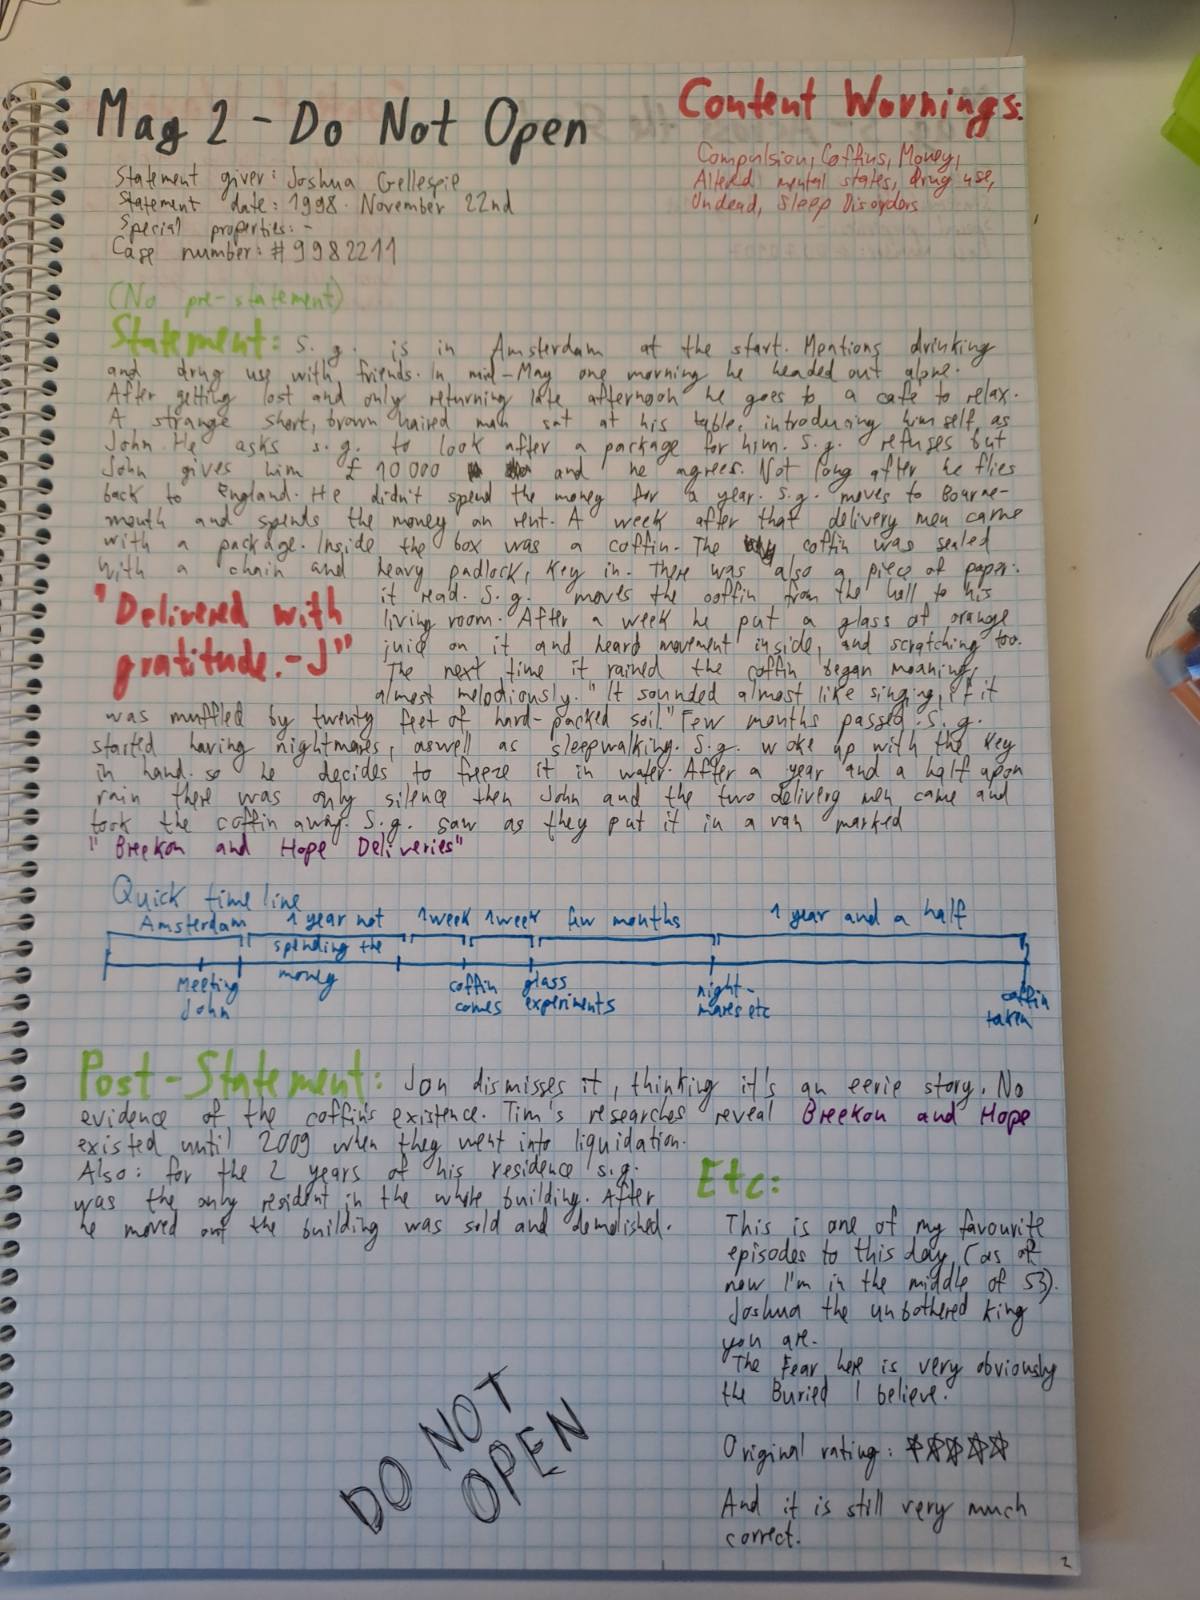 Mag 2 - Do Not Open
Content Wornings:
Compulsion, Coffins, Money,
Alterd mental states, drug use,
Undead, Sleep Disorders
Statement giver: Joshua Gellespie
Statement date: 1998. November 22nd
Special properties: -
Case number: #9982211
(No pre-statement)
Statement: S. g. is in Amsterdam at the start. Mentions drinking
and drug use with friends. In mid-May one morning he headed out alone.
After getting lost and only returning late afternoon he goes to a cafe to relax.
A strange short, brown haired man sat at his table, introducing himself, as
John. He asks s.g. to look after a package for him. S.g. refuses but
John gives him £ 10 000 and he agrees. Not long after he flies
back to England. He didn't spend the money for a year. S.g. moves to Bourne-
mouth and spends the money on rent. A week after that delivery men came
with a package. Inside the box was a coffin. The coffin was sealed
with a chain and heavy padlock, key in. There was also a piece of paper.
"Delivered with
gratitude. - J"
it read. S.g. moves the coffin from the hall to his
living room. After a week he put a glass of orange
juice on it and heard movement inside, and scratching too.
The next time it rained the coffin began moaning,
almost melodiously. "It sounded almost like singing, if it
was muffled by twenty feet of hard-packed soil." Few months passed. S.g.
started having nightmares, aswell as sleepwalking. S.g. woke up with the key
in hand. so he decides to freeze it in water. After a year and a half upon
rain there was only silence then John and the two delivery men came and
took the coffin away. S.g. saw as they put it in a van marked
"Breekon and Hope Deliveries"
Quick time line
Amsterdam 1 year not 1week 1week few months 1 year and a half
spending the
money
Meeting
John
coffin
comes
glass
experiments
night-
mares etc
coffin
taken
Post-Statement: Jon dismisses it, thinking it's an eerie story. No
evidence of the coffin's existence. Tim's researches reveal Breekon and Hope
existed until 2009 when they went into liquidation.
Also: for the 2 years of his residence s.g.
was the only resident in the whole building. After
he moved out the building was sold and demolished.
Etc:
This is one of my favourite
episodes to this day (as of
now I'm in the middle of S3).
Joshua the unbothered king
you are.
The Fear here is very obviously
the Buried I believe.
Original rating: ☆☆☆☆☆
And it is still very much
correct.
DO NOT
OPEN
2